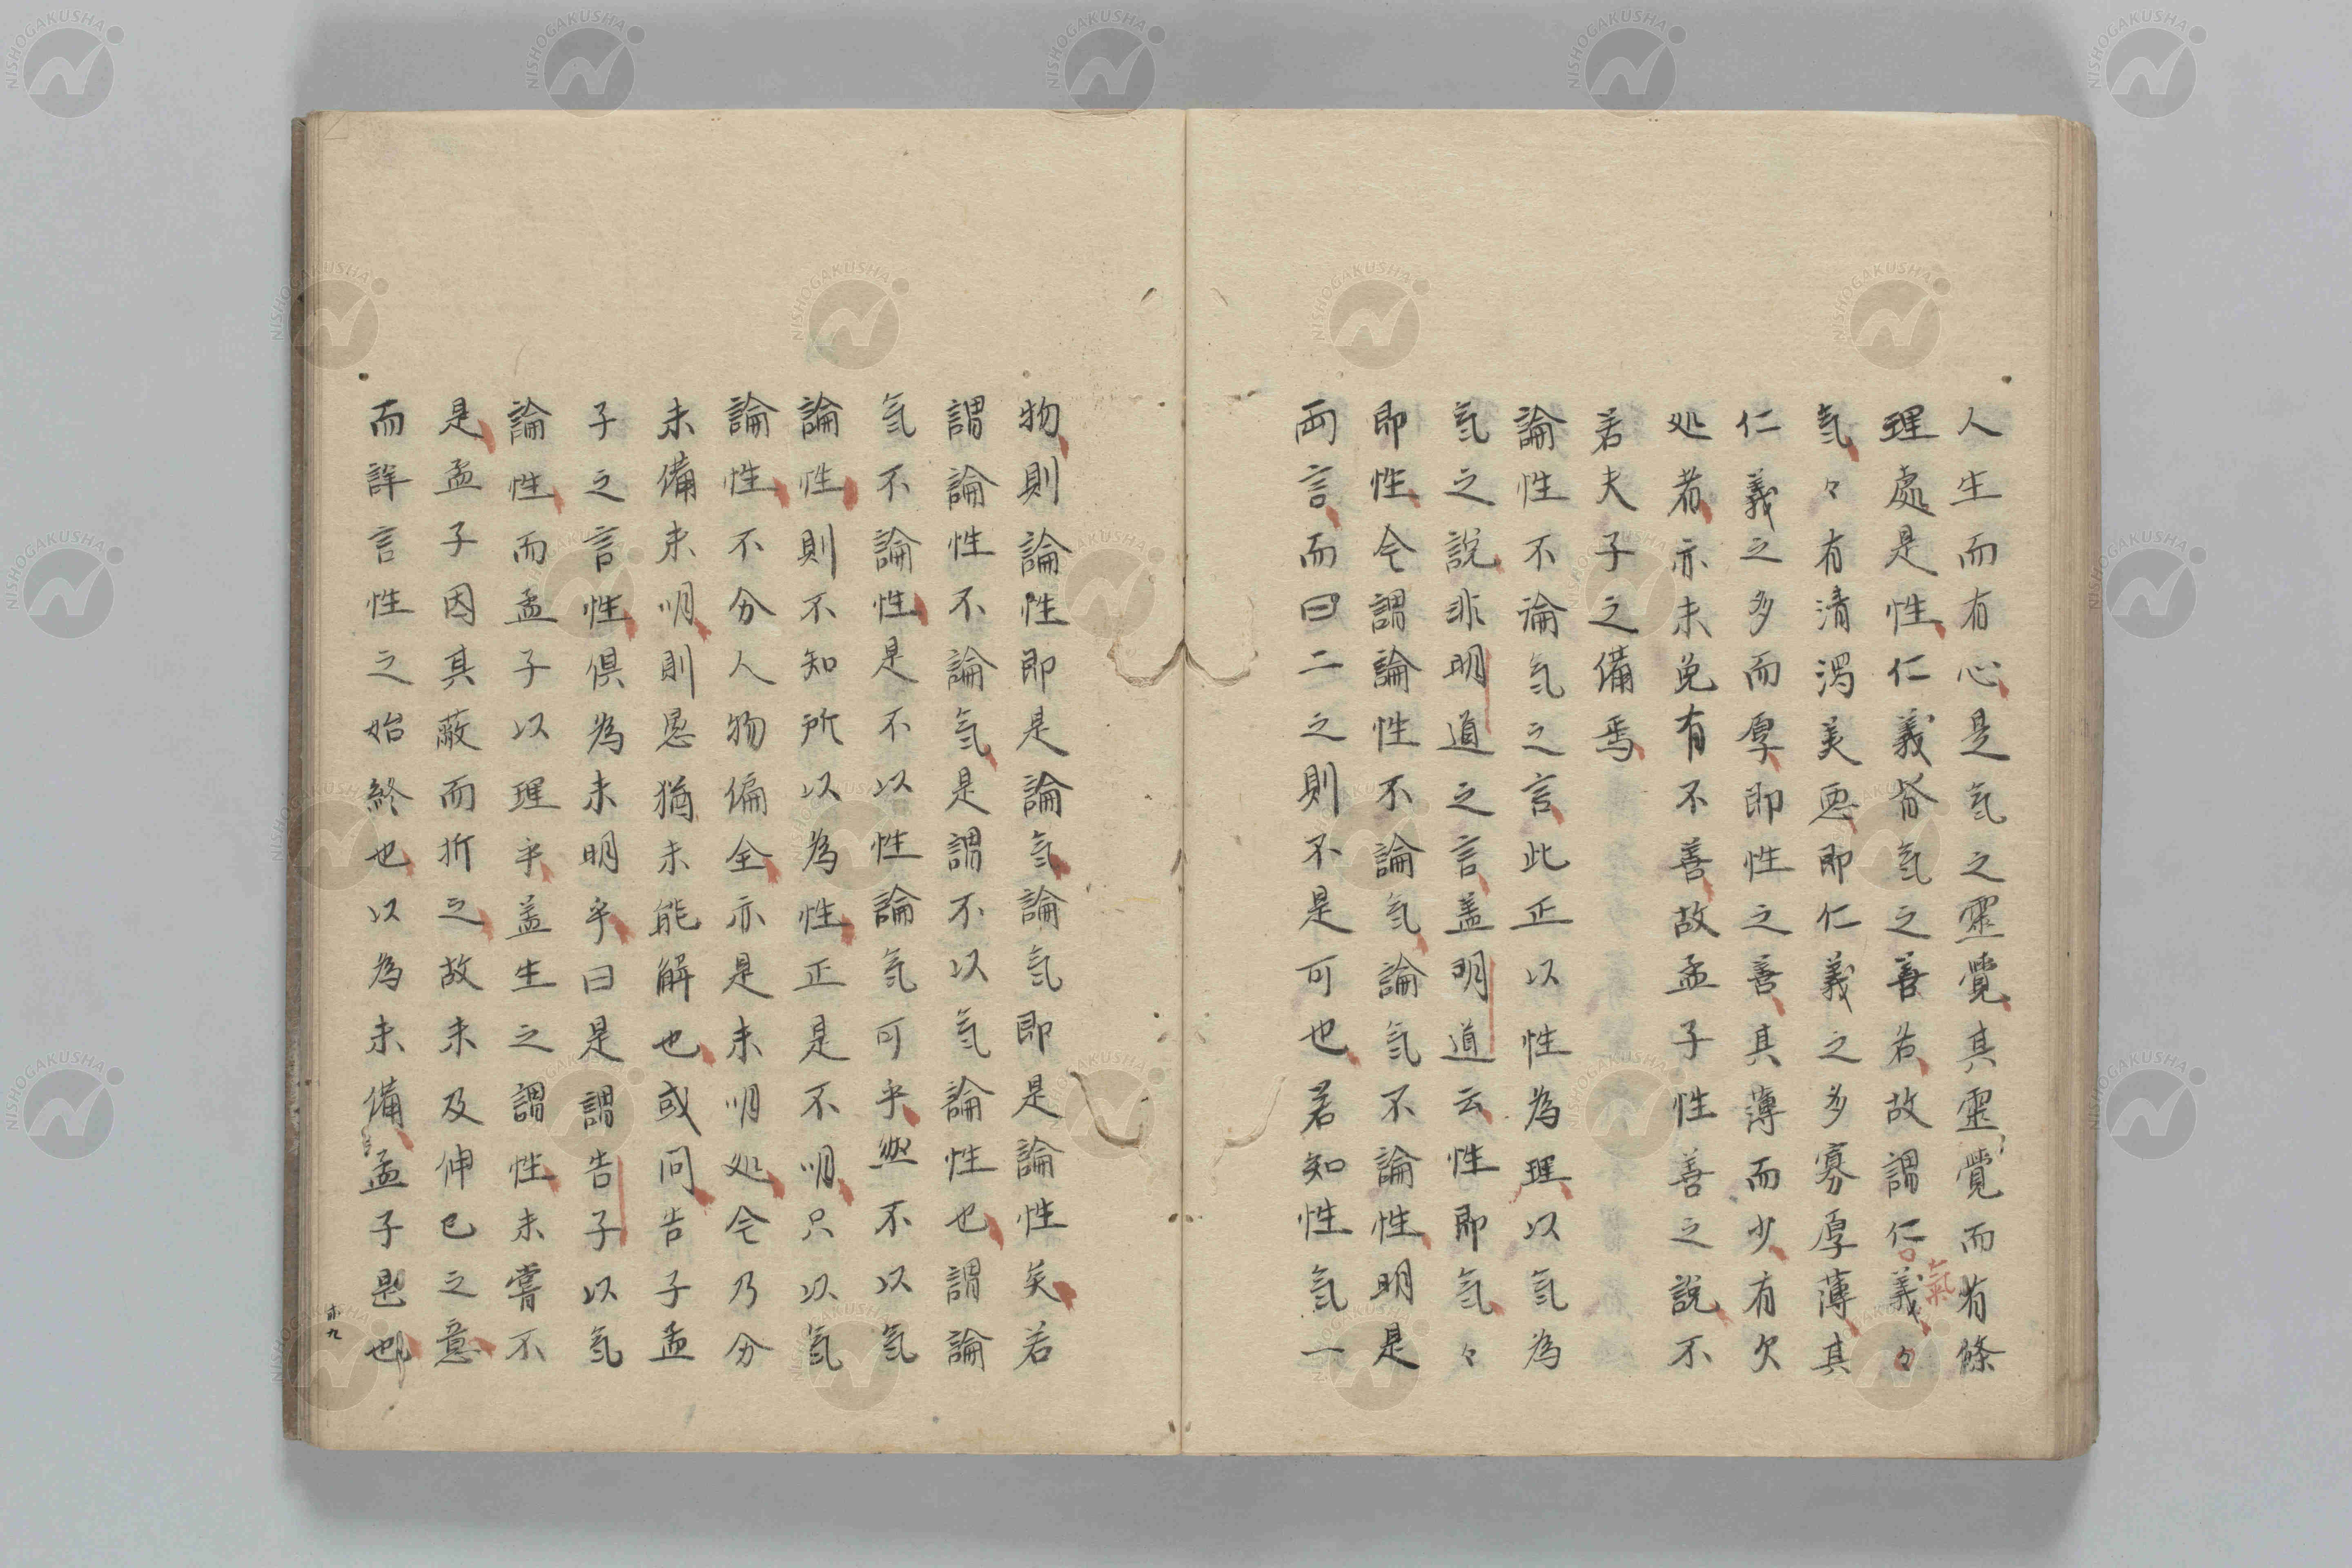 人生而有心是氣之靈覺其靈覺而有條
理處是性仁義者氣之善者故謂仁義々
氣
氣々有清濁美惡即仁義之多寡厚薄其
仁義之多而厚即性之善其薄而少有欠
処者亦未免有不善故孟子性善之說不
若夫子之備焉
論性不論氣之言此正以性為理以氣為
氣之說非明道之言盖明道云性即氣々
即性今謂論性不論氣論氣不論性明是
兩言而曰二之則不是可也若知性氣一
物則論性即是論氣論氣即是論性矣若
謂論性不論氣是謂不以氣論性也謂論
氣不論性是不以性論氣可乎然不以氣
論性則不知所以為性正是不明只以氣
論性不分人物偏全亦是未明処今乃分
未備未明則恐猶未能解也或問告子孟
子之言性俱為未明乎曰是謂告子以氣
論性而孟子以理乎盖生之謂性未嘗不
是孟子因其蔽而折之故未及伸已之意
而詳言性之始終也以為未備孟子是也
卅九
NISHOGAKUSHA